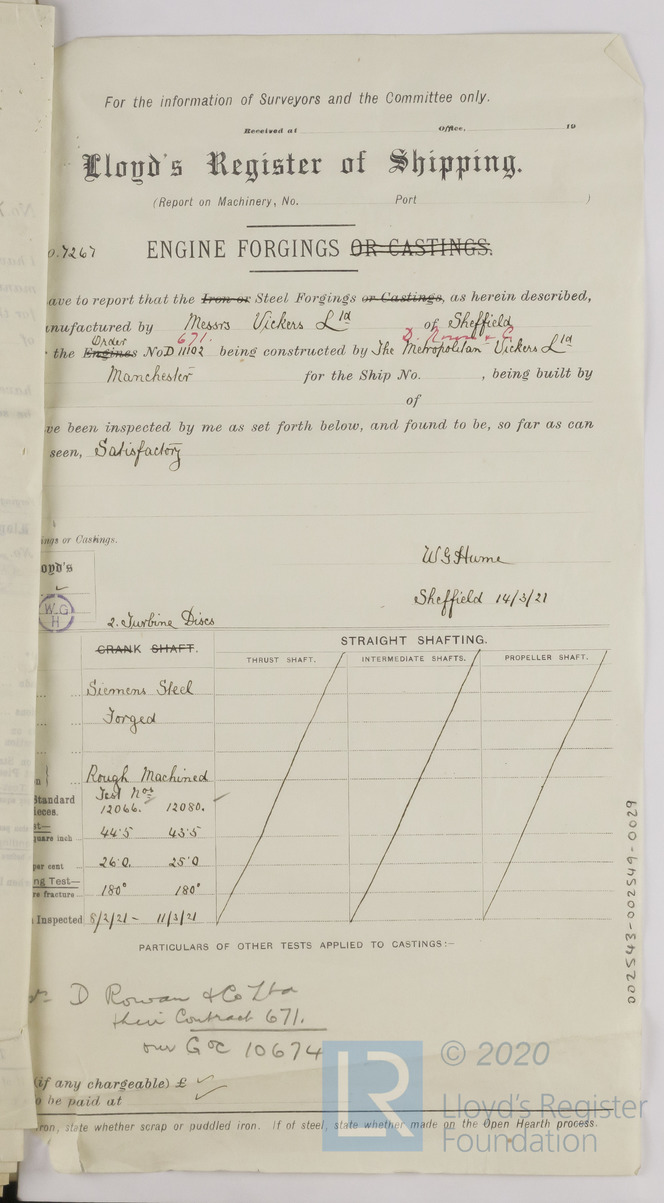 For the information of Surveyors and the Committee only.
Received at Office, 19
Lloyd's Register of Shipping.
(Report on Machinery, No. Port )
o. 7267 ENGINE FORGINGS OR CASTINGS.
ave to report that the Iron or Steel Forgings or Castings, as herein described,
anufactured by Messrs Vickers Ltd of Sheffield
Order 671. D. Rowan & Co
the Engines No D 11102 being constructed by The Metropolitan Vickers Ltd
Manchester for the Ship No. , being built by
of
ve been inspected by me as set forth below, and found to be, so far as can
seen, Satisfactory
ings or Castings.
W G Hume
oyd's
Sheffield 14/3/21
W.G
H
2. Turbine Discs
CRANK SHAFT. STRAIGHT SHAFTING.
THRUST SHAFT. INTERMEDIATE SHAFTS. PROPELLER SHAFT.
Siemens Steel
Forged
Rough Machined
Test Nos
Standard
ieces. 12066. 12080.
st—
quare inch 44.5 43.5
per cent 26.0. 25.0
ng Test—
re fracture 180° 180°
Inspected 8/2/21 - 11/3/21
PARTICULARS OF OTHER TESTS APPLIED TO CASTINGS:—
D Rowan & Co Ltd
their Contract 671.
our Goc 10674
(if any chargeable) £
o be paid at
ron, state whether scrap or puddled iron. If of steel, state whether made on the Open Hearth process.
002543-002549-0029
LR
© 2020
Lloyd's Register
Foundation